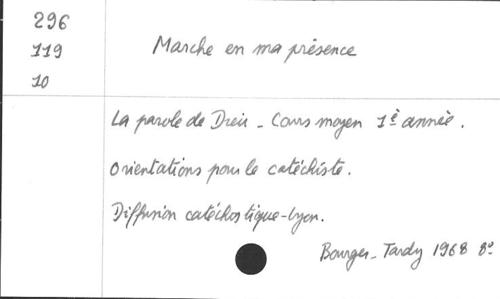 296
119
10
Marche en ma présence
La parole de Dieu - Cours moyen 1è année.
Orientations pour le catéchiste.
Diffusion catéchostique-Lyon.
Bourges-Tardy 1968 8°